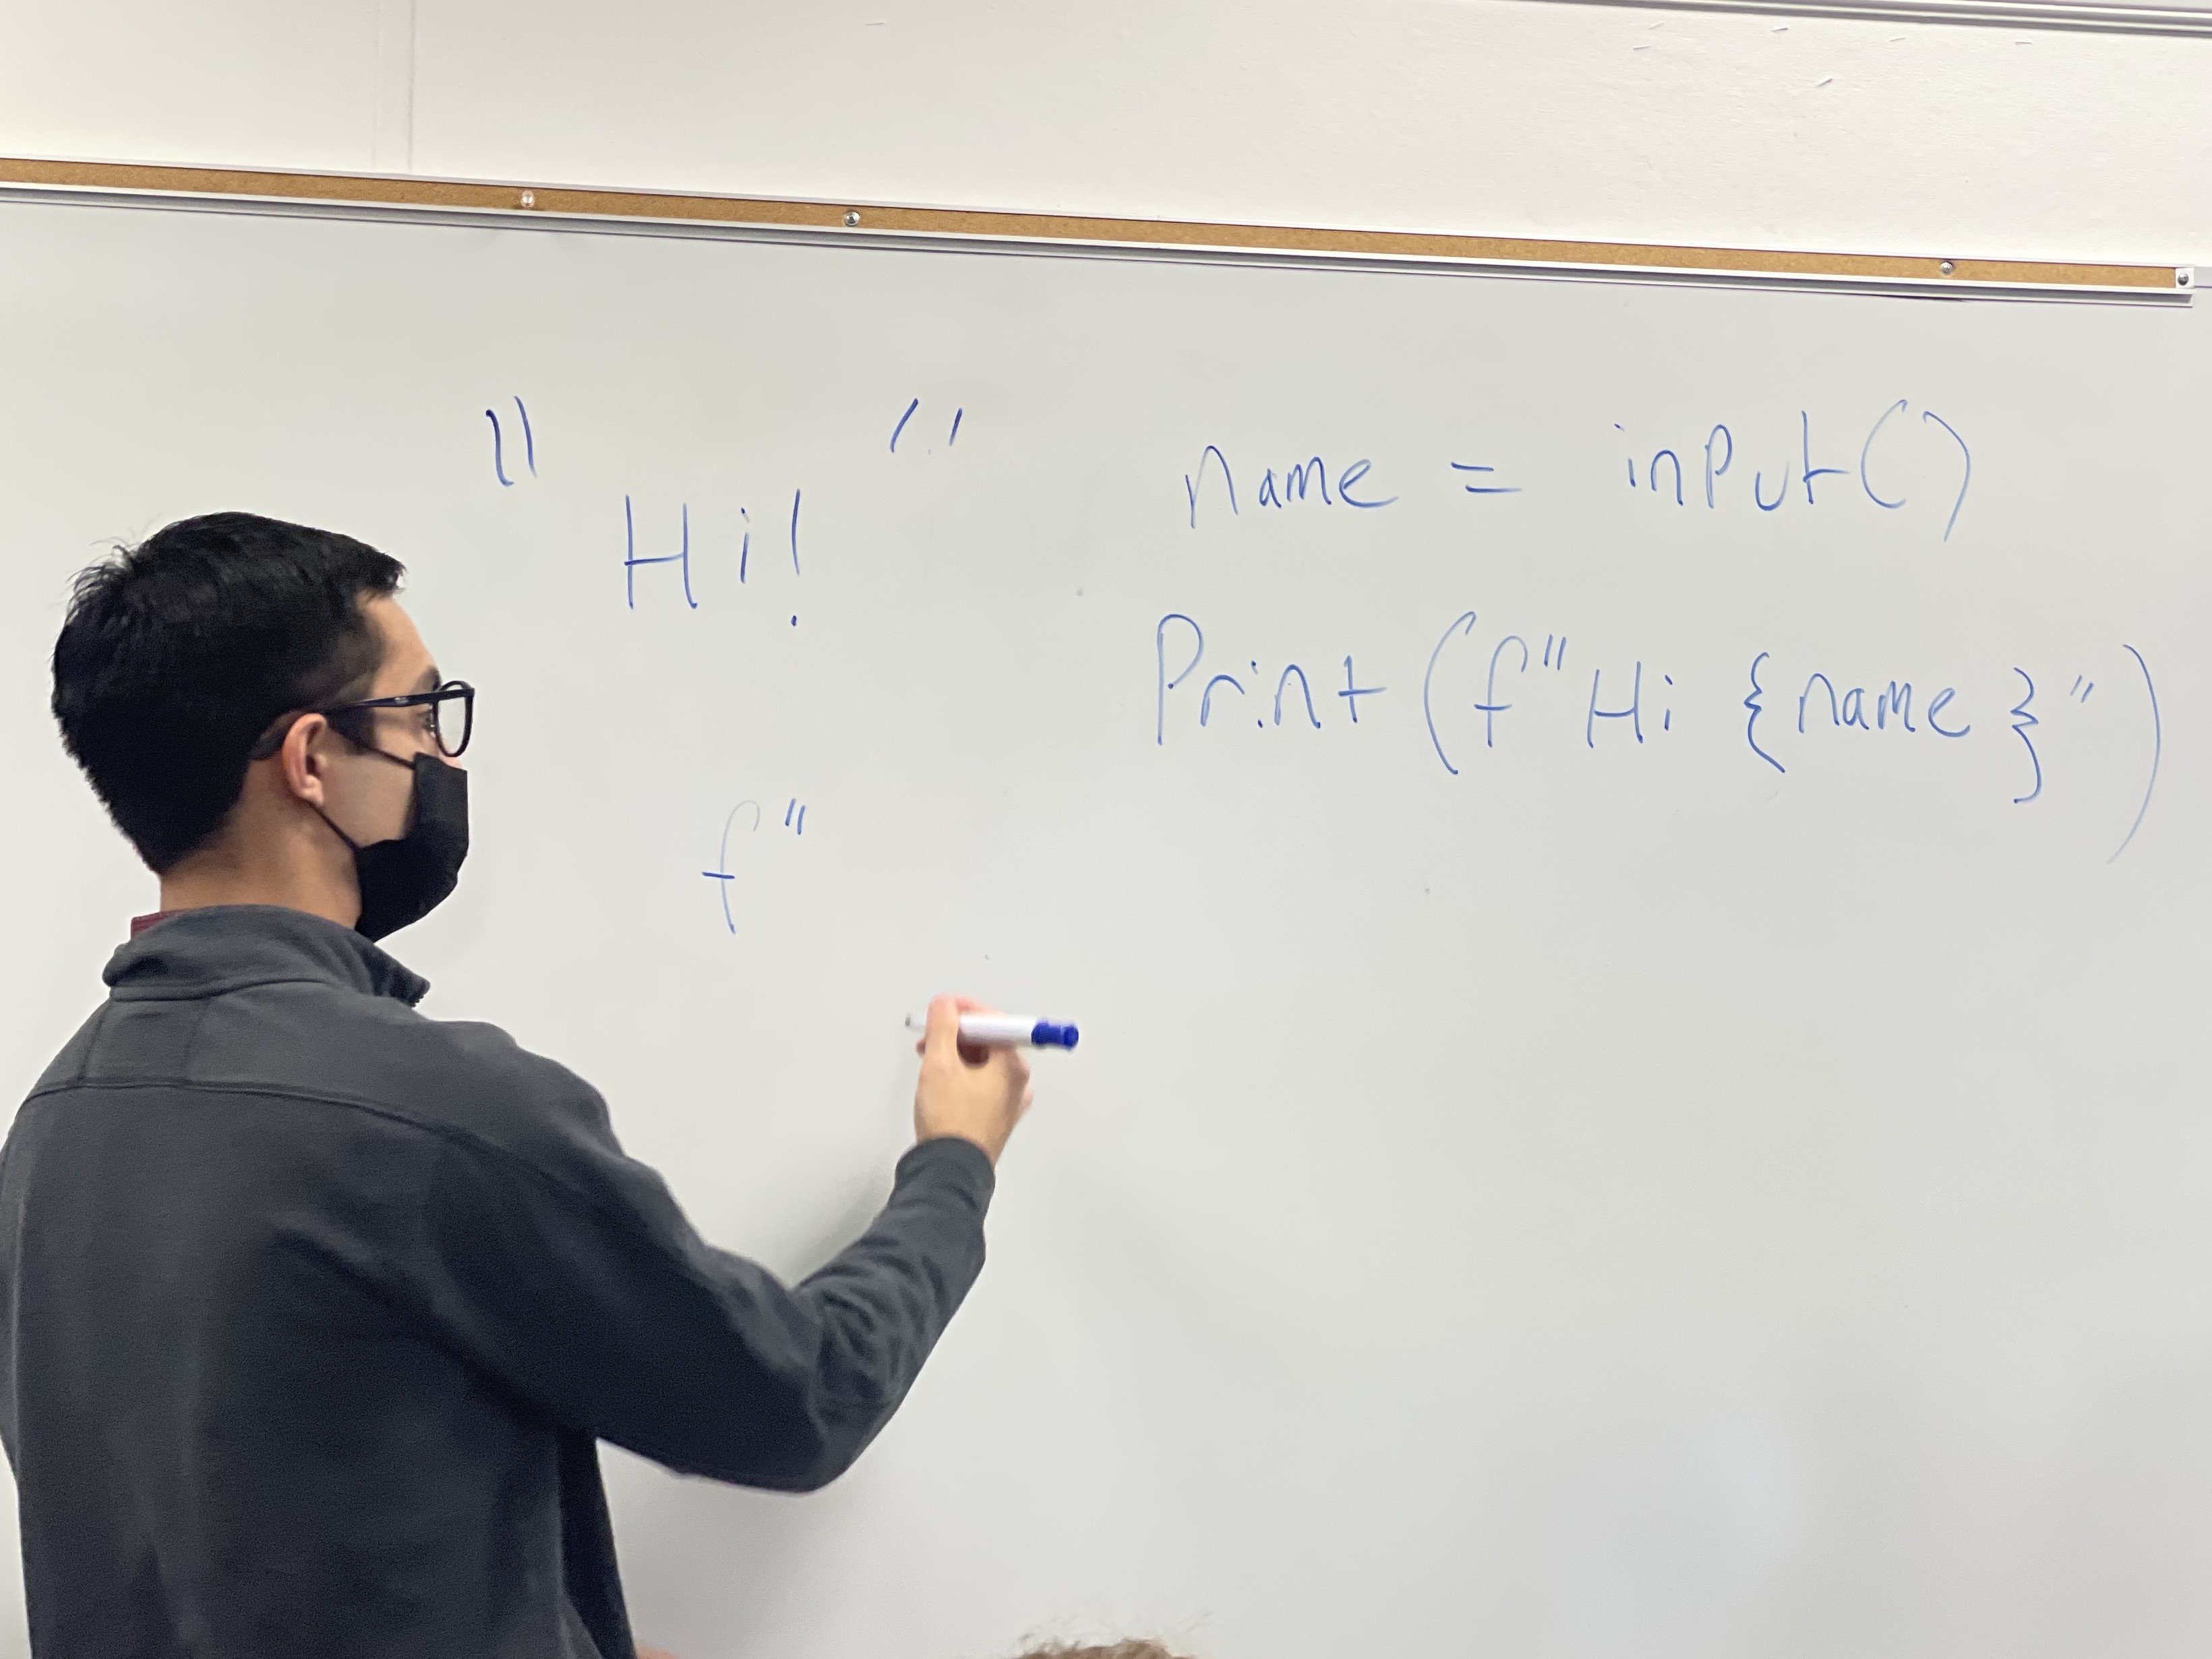 " Hi! "
f"
name = input()
Print(f"Hi {name}")